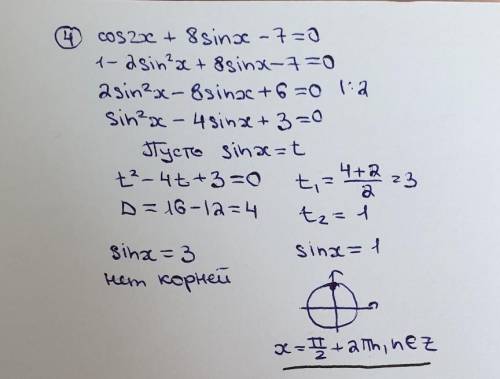 ④ cos2x + 8sinx - 7 = 0
1 - 2sin²x + 8sinx - 7 = 0
2sin²x - 8sinx + 6 = 0 |:2
sin²x - 4sinx + 3 = 0
Пусть sinx = t
t² - 4t + 3 = 0 t₁ = (4+2)/2 = 3
D = 16 - 12 = 4 t₂ = 1
sinx = 3 sinx = 1
нет корней
x = π/2 + 2πn, n∈Z